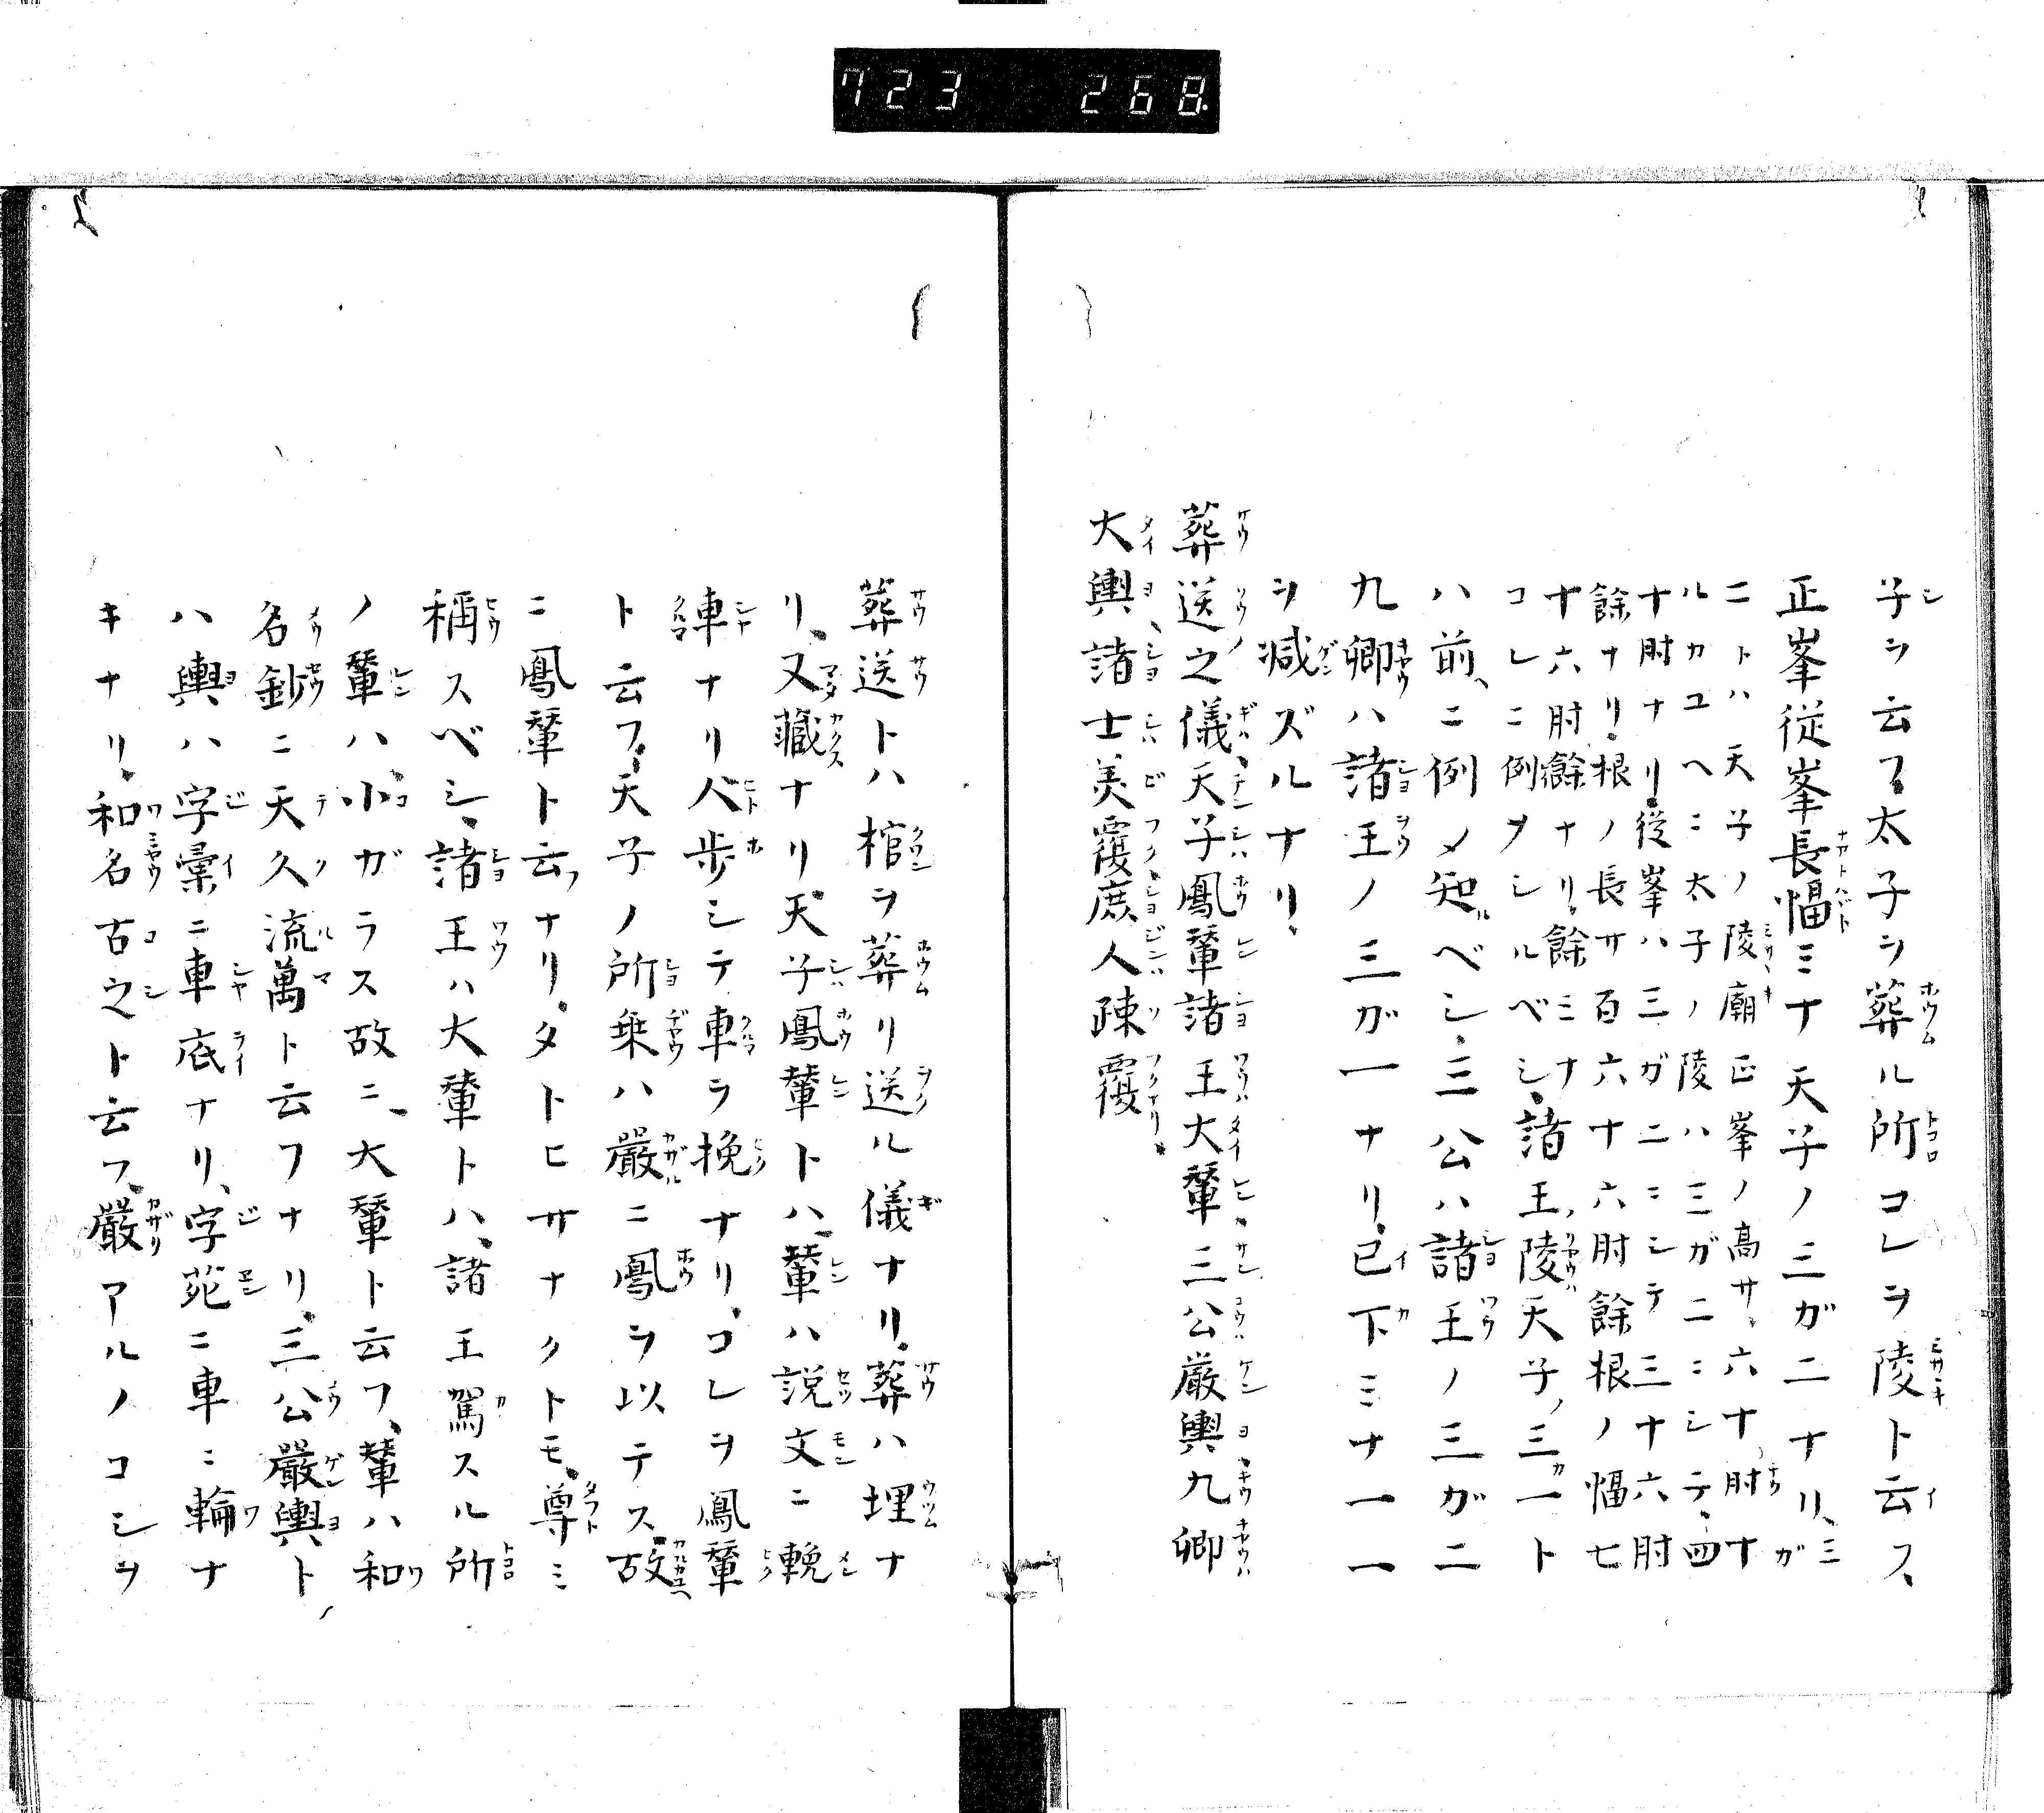 723 268.
子ヲ云フ太子ヲ葬ル所コレヲ陵ト云フ、
正峯従峯長幅ミナ天子ノ三ガ二ナリ、三ガ
ニトハ天子ノ陵廟正峯ノ高サ六十肘ナ
ルカユヘニ太子ノ陵ハ三ガ二ニシテ四
十肘ナリ従峯ハ三ガ二ニシテ三十六肘
餘ナリ根ノ長サ百六十六肘餘根ノ幅七
十六肘餘ナリ餘ミナ
コレニ例ヲシルベシ、諸王ノ陵天子ノ三ガ一ト
ハ前ニ例メ知ベシ、三公ハ諸王ノ三ガ二
九卿ハ諸王ノ三ガ一ナリ已下ミナ一一
ヲ減ズルナリ
葬送之儀天子鳳輦諸王大輦三公厳輿九卿
大輿諸士美覆庶人疎覆
葬送トハ棺ヲ葬リ送ル儀ナリ葬ハ埋ナ
リ、又藏ナリ天子鳳輦トハ、輦ハ説文ニ輓
車ナリ人歩シテ車ヲ挽ナリコレヲ鳳輦
ト云フ天子ノ所乗ハ嚴ニ鳳ヲ以テス故
ニ鳳輦ト云フナリタトヒサナクトモ尊ミ
稱スベシ、諸王ハ大輦トハ、諸王駕スル所
ノ輦ハ、小ガラス故ニ、大輦ト云フ、輦ハ和
名鈔ニ天久流萬ト云フナリ、三公嚴輿ト
ハ輿ハ字彙ニ車底ナリ、字苑ニ車ニ輪ナ
キナリ和名古之ト云フ、嚴アルノコシヲ